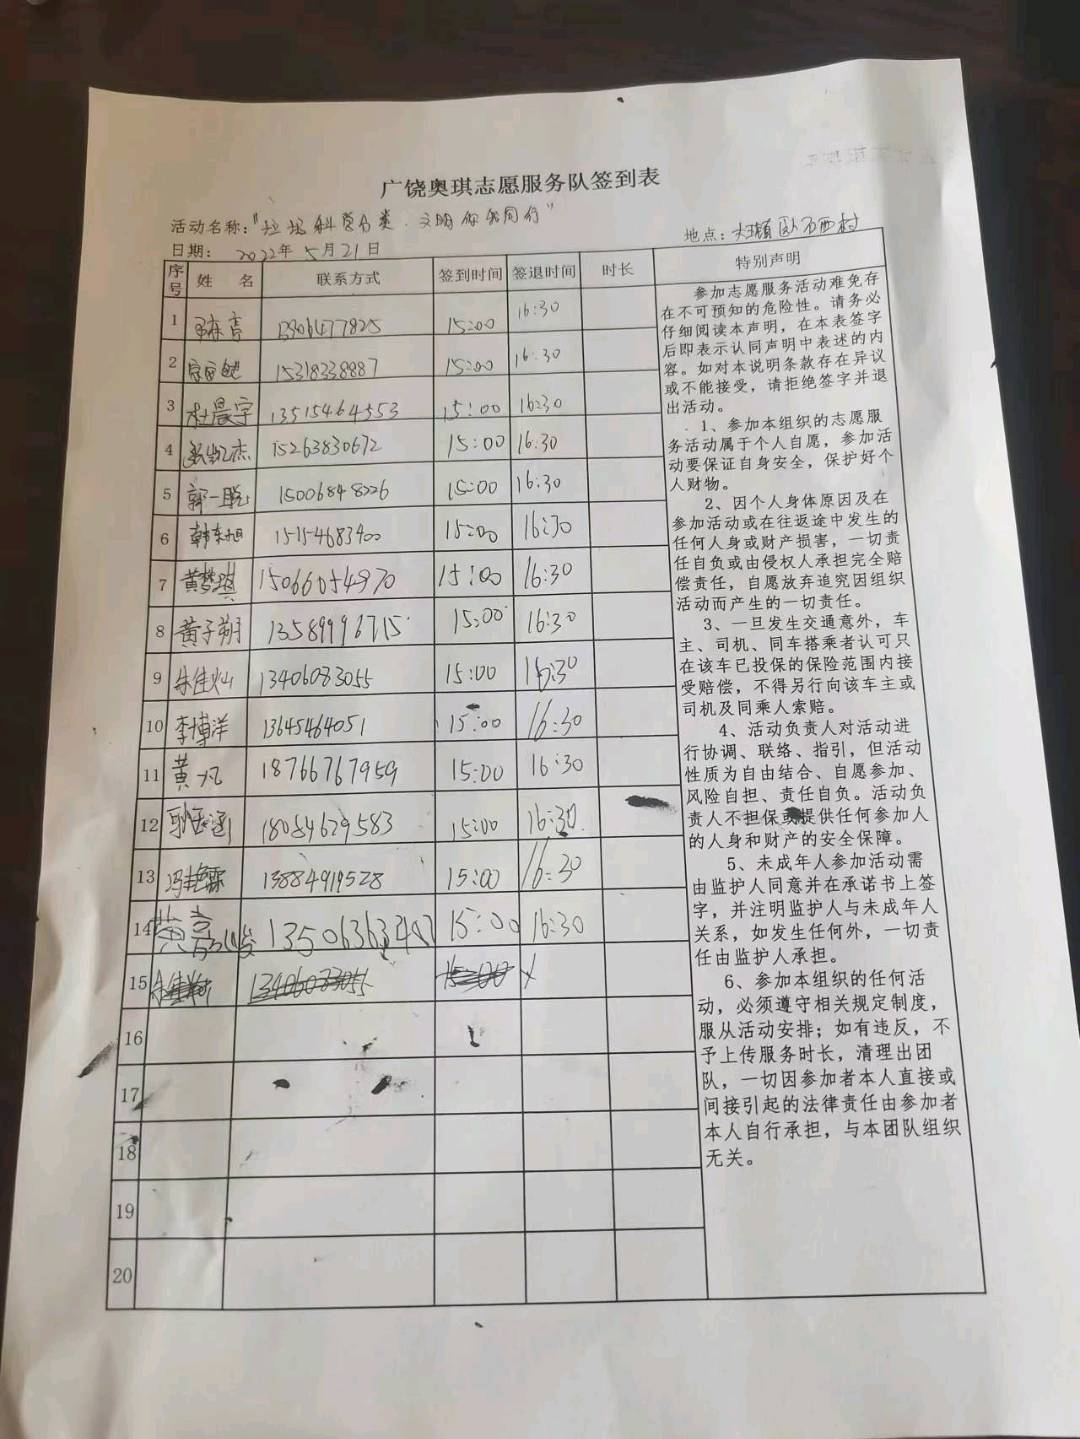 广饶奥琪志愿服务队签到表
活动名称："垃圾科学分类·文明你我同行"
地点：大王镇 西村
日期： 2022年5月21日
序号 姓 名 联系方式 签到时间 签退时间 时长 特别声明
1 13906477825 15:00 16:30
2 15318338887 15:00 16:30
3 杜晨宇 13515464553 15:00 16:30
4 张凯杰 15263830672 15:00 16:30
5 郭一聪 15006848226 15:00 16:30
6 韩东旭 15154683400 15:00 16:30
7 黄梦琪 15066054970 15:00 16:30
8 黄子朔 13589996715 15:00 16:30
9 朱佳灿 13406083055 15:00 16:30
10 李博洋 13645464051 15:00 16:30
11 黄一凡 18766767959 15:00 16:30
12 耿玉涵 18054629583 15:00 16:30
13 冯艳霖 13884919528 15:00 16:30
14 黄 15:00 16:30
15 13406083055 15:00
16
17
18
19
20
参加志愿服务活动难免存
在不可预知的危险性。请务必
仔细阅读本声明，在本表签字
后即表示认同声明中表述的内
容。如对本说明条款存在异议
或不能接受，请拒绝签字并退
出活动。
1、参加本组织的志愿服
务活动属于个人自愿，参加活
动要保证自身安全，保护好个
人财物。
2、因个人身体原因及在
参加活动或在往返途中发生的
任何人身或财产损害，一切责
任自负或由侵权人承担完全赔
偿责任，自愿放弃追究因组织
活动而产生的一切责任。
3、一旦发生交通意外，车
主、司机、同车搭乘者认可只
在该车已投保的保险范围内接
受赔偿，不得另行向该车主或
司机及同乘人索赔。
4、活动负责人对活动进
行协调、联络、指引，但活动
性质为自由结合、自愿参加、
风险自担、责任自负。活动负
责人不担保或提供任何参加人
的人身和财产的安全保障。
5、未成年人参加活动需
由监护人同意并在承诺书上签
字，并注明监护人与未成年人
关系，如发生任何外，一切责
任由监护人承担。
6、参加本组织的任何活
动，必须遵守相关规定制度，
服从活动安排；如有违反，不
予上传服务时长，清理出团
队，一切因参加者本人直接或
间接引起的法律责任由参加者
本人自行承担，与本团队组织
无关。